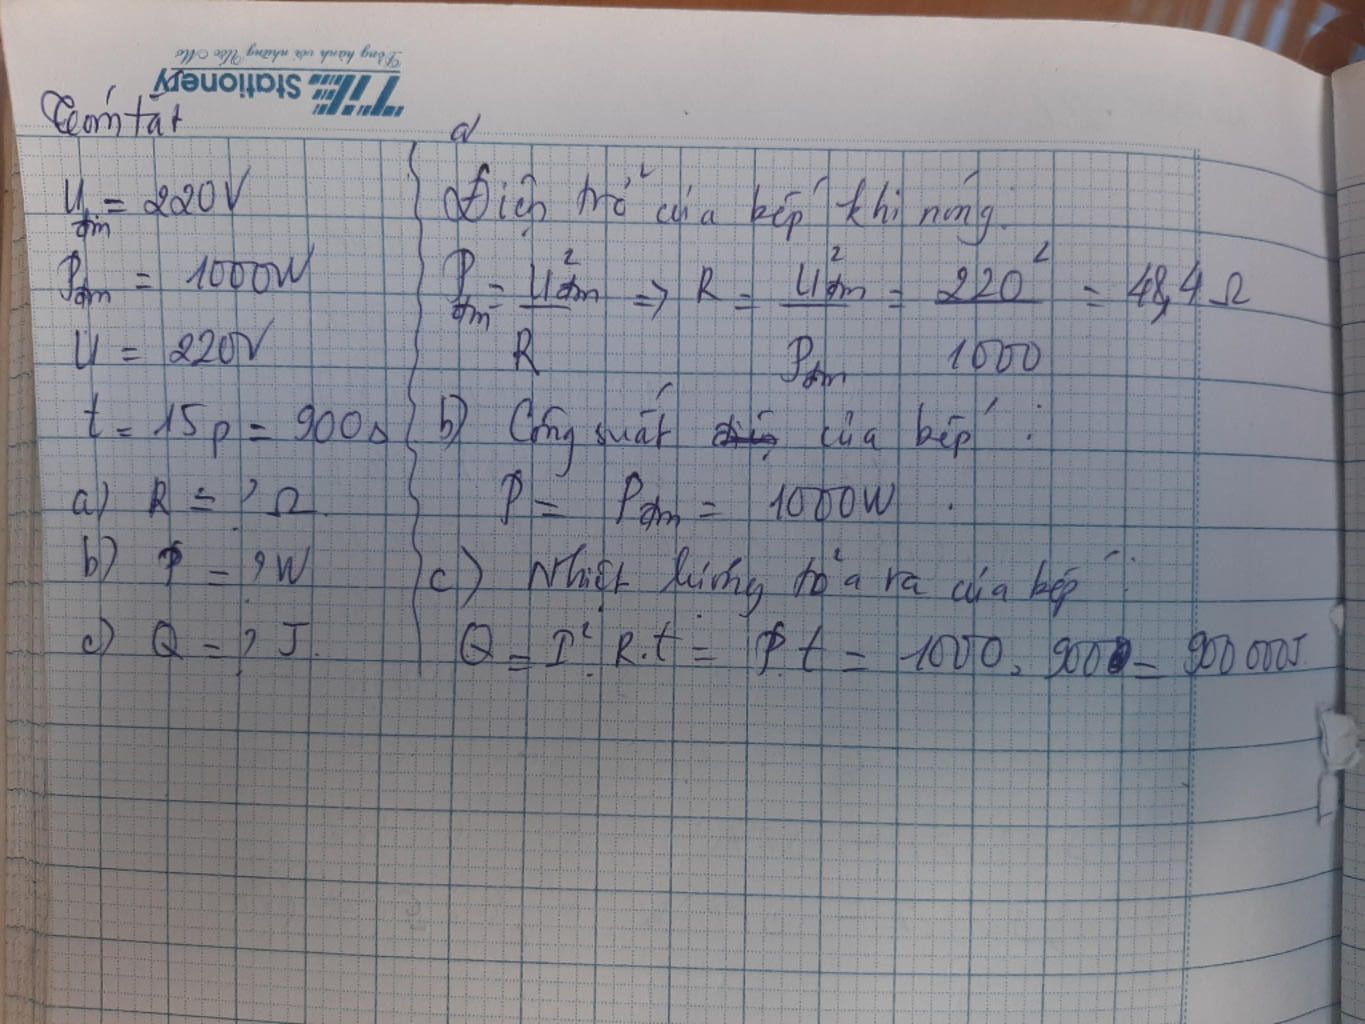 Đồng hành với những Ước Mơ
TiTi Stationery
Tóm tắt
Uđm = 220V
Pđm = 1000W
U = 220V
t = 15p = 900s
a) R = ? Ω.
b) P = ? W
c) Q = ? J.
a/
Điện trở của bếp khi nóng:
Pđm = U²đm / R => R = U²đm / Pđm = 220² / 1000 = 48,4 Ω
b) Công suất của bếp :
P = Pđm = 1000W .
c) Nhiệt lượng tỏa ra của bếp :
Q = I². R.t = P.t = 1000. 900 = 900 000J.